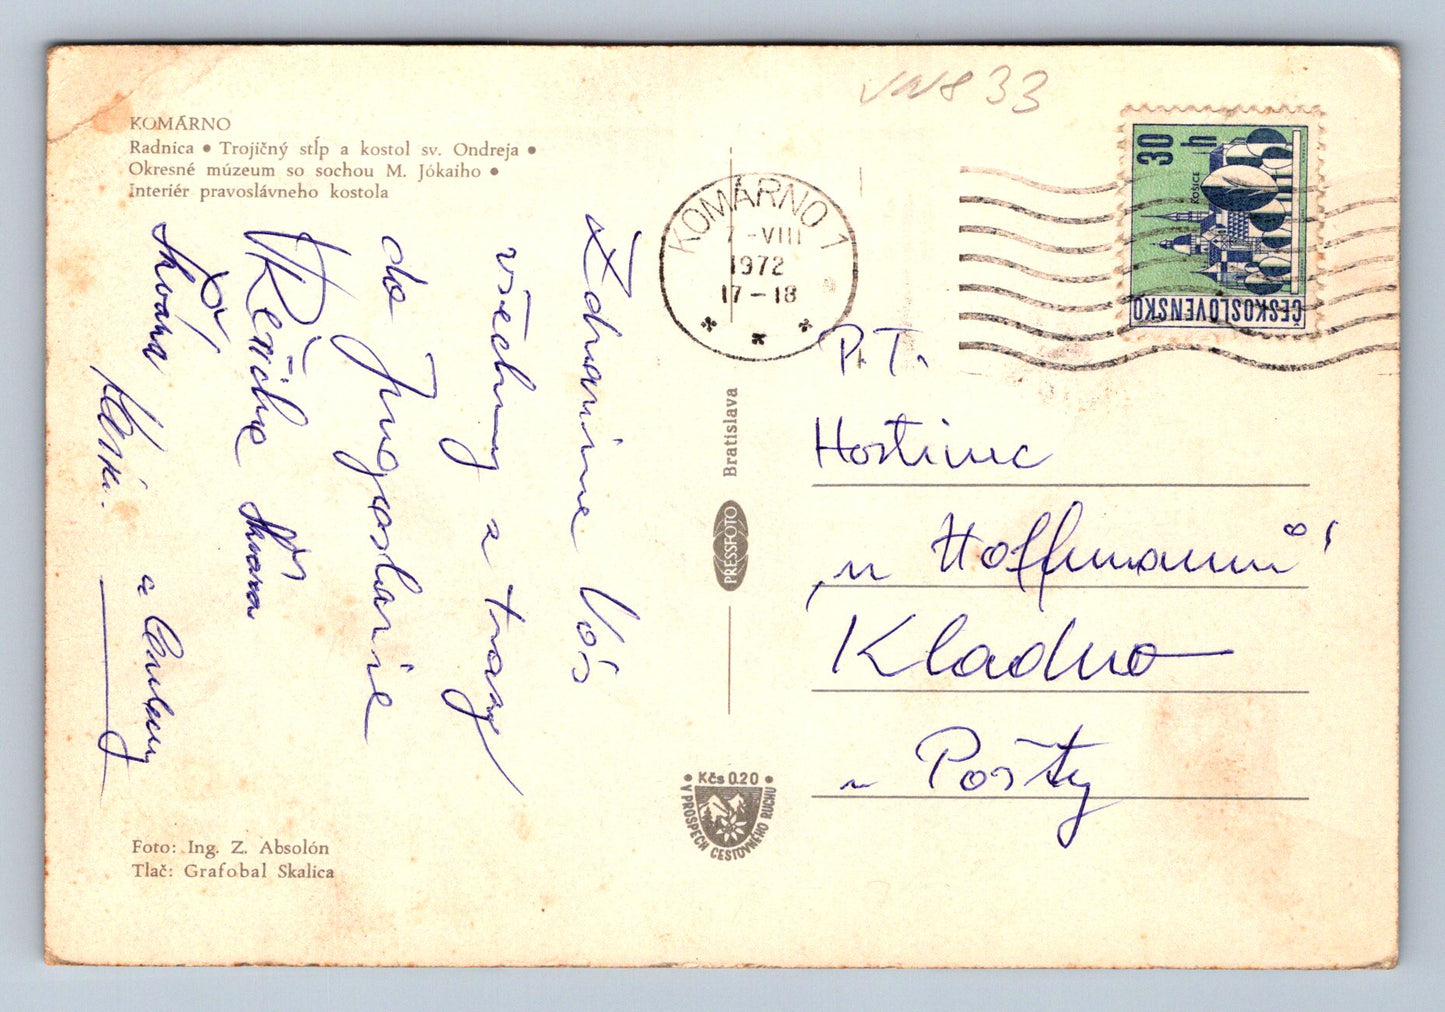 KOMÁRNO
Radnica • Trojičný stĺp a kostol sv. Ondreja •
Okresné múzeum so sochou M. Jókaiho •
Interiér pravoslávneho kostola
Zdravíme Vás
všechny z trasy
do Jugoslávie
a
Foto: Ing. Z. Absolón
Tlač: Grafobal Skalica
KOMÁRNO 1
7 -VIII
1972
17-18
Bratislava
PRESSFOTO
• Kčs 0.20 •
V PROSPECH CESTOVNÉHO RUCHU
33
30 h
KOŠICE
ČESKOSLOVENSKO
P. T.
Hostinec
„u Hoffmannů"
Kladno
u Pošty